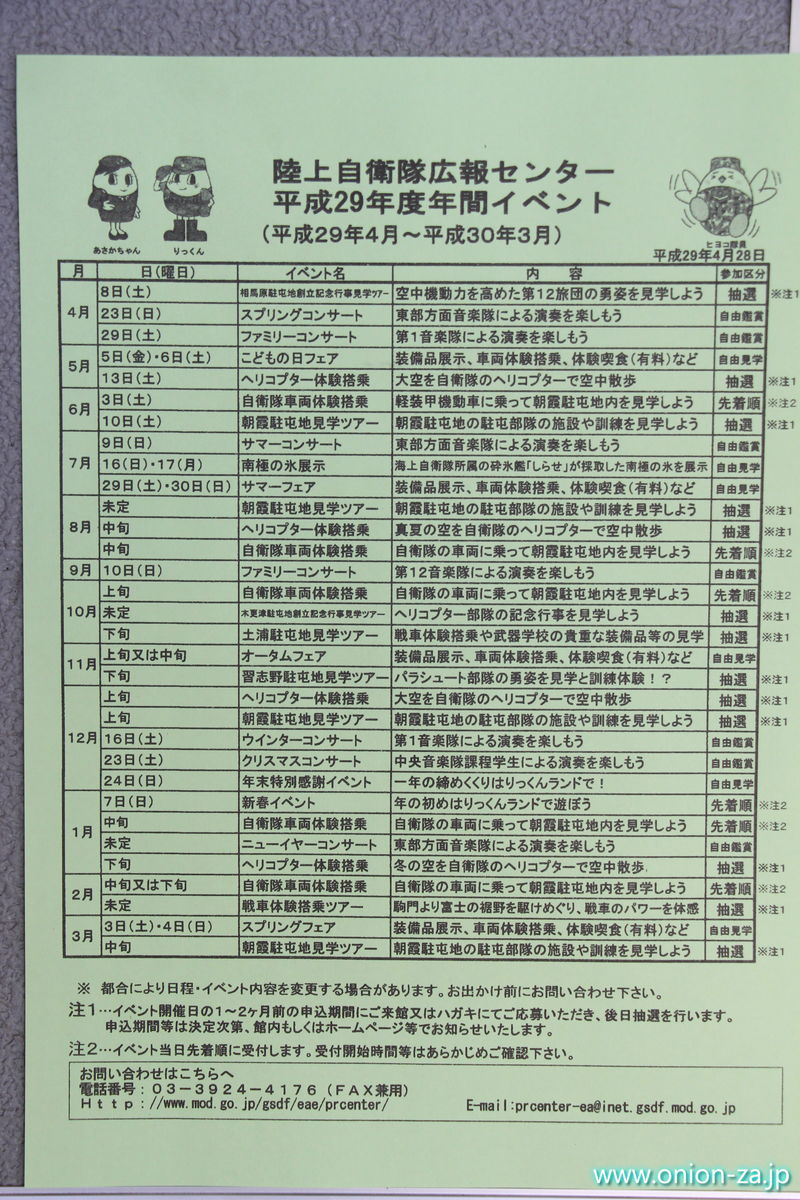 陸上自衛隊広報センター
平成29年度年間イベント
(平成29年4月～平成30年3月)
あさかちゃん りっくん ヒヨコ隊員
平成29年4月28日
月 日(曜日) イベント名 内 容 参加区分
4月 8日(土) 相馬原駐屯地創立記念行事見学ツアー 空中機動力を高めた第12旅団の勇姿を見学しよう 抽選 ※注1
23日(日) スプリングコンサート 東部方面音楽隊による演奏を楽しもう 自由鑑賞
29日(土) ファミリーコンサート 第1音楽隊による演奏を楽しもう 自由鑑賞
5月 5日(金)・6日(土) こどもの日フェア 装備品展示、車両体験搭乗、体験喫食(有料)など 自由見学
13日(土) ヘリコプター体験搭乗 大空を自衛隊のヘリコプターで空中散歩 抽選 ※注1
6月 3日(土) 自衛隊車両体験搭乗 軽装甲機動車に乗って朝霞駐屯地内を見学しよう 先着順 ※注2
10日(土) 朝霞駐屯地見学ツアー 朝霞駐屯地の駐屯部隊の施設や訓練を見学しよう 抽選 ※注1
7月 9日(日) サマーコンサート 東部方面音楽隊による演奏を楽しもう 自由鑑賞
16(日)・17(月) 南極の氷展示 海上自衛隊所属の砕氷艦「しらせ」が採取した南極の氷を展示 自由見学
29日(土)・30日(日) サマーフェア 装備品展示、車両体験搭乗、体験喫食(有料)など 自由見学
8月 未定 朝霞駐屯地見学ツアー 朝霞駐屯地の駐屯部隊の施設や訓練を見学しよう 抽選 ※注1
中旬 ヘリコプター体験搭乗 真夏の空を自衛隊のヘリコプターで空中散歩 抽選 ※注1
中旬 自衛隊車両体験搭乗 自衛隊の車両に乗って朝霞駐屯地内を見学しよう 先着順 ※注2
9月 10日(日) ファミリーコンサート 第12音楽隊による演奏を楽しもう 自由鑑賞
10月 上旬 自衛隊車両体験搭乗 自衛隊の車両に乗って朝霞駐屯地内を見学しよう 先着順 ※注2
未定 木更津駐屯地創立記念行事見学ツアー ヘリコプター部隊の記念行事を見学しよう 抽選 ※注1
下旬 土浦駐屯地見学ツアー 戦車体験搭乗や武器学校の貴重な装備品等の見学 抽選 ※注1
11月 上旬又は中旬 オータムフェア 装備品展示、車両体験搭乗、体験喫食(有料)など 自由見学
下旬 習志野駐屯地見学ツアー パラシュート部隊の勇姿を見学と訓練体験!? 抽選 ※注1
12月 上旬 ヘリコプター体験搭乗 大空を自衛隊のヘリコプターで空中散歩 抽選 ※注1
上旬 朝霞駐屯地見学ツアー 朝霞駐屯地の駐屯部隊の施設や訓練を見学しよう 抽選 ※注1
16日(土) ウインターコンサート 第1音楽隊による演奏を楽しもう 自由鑑賞
23日(土) クリスマスコンサート 中央音楽隊課程学生による演奏を楽しもう 自由鑑賞
24日(日) 年末特別感謝イベント 一年の締めくくりはりっくんランドで! 自由見学
1月 7日(日) 新春イベント 年の初めはりっくんランドで遊ぼう 先着順 ※注2
中旬 自衛隊車両体験搭乗 自衛隊の車両に乗って朝霞駐屯地内を見学しよう 先着順 ※注2
未定 ニューイヤーコンサート 東部方面音楽隊による演奏を楽しもう 自由鑑賞
下旬 ヘリコプター体験搭乗 冬の空を自衛隊のヘリコプターで空中散歩. 抽選 ※注1
2月 中旬又は下旬 自衛隊車両体験搭乗 自衛隊の車両に乗って朝霞駐屯地内を見学しよう 先着順 ※注2
未定 戦車体験搭乗ツアー 駒門より富士の裾野を駆けめぐり、戦車のパワーを体感 抽選 ※注1
3月 3日(土)・4日(日) スプリングフェア 装備品展示、車両体験搭乗、体験喫食(有料)など 自由見学
中旬 朝霞駐屯地見学ツアー 朝霞駐屯地の駐屯部隊の施設や訓練を見学しよう 抽選 ※注1
※ 都合により日程・イベント内容を変更する場合があります。お出かけ前にお問い合わせ下さい。
注1…イベント開催日の1～2ヶ月前の申込期間にご来館又はハガキにてご応募いただき、後日抽選を行います。
申込期間等は決定次第、館内もしくはホームページ等でお知らせいたします。
注2…イベント当日先着順に受付します。受付開始時間等はあらかじめご確認下さい。
お問い合わせはこちらへ
電話番号:03-3924-4176(FAX兼用)
Http://www.mod.go.jp/gsdf/eae/prcenter/ E-mail:prcenter-ea@inet.gsdf.mod.go.jp
www.onion-za.jp